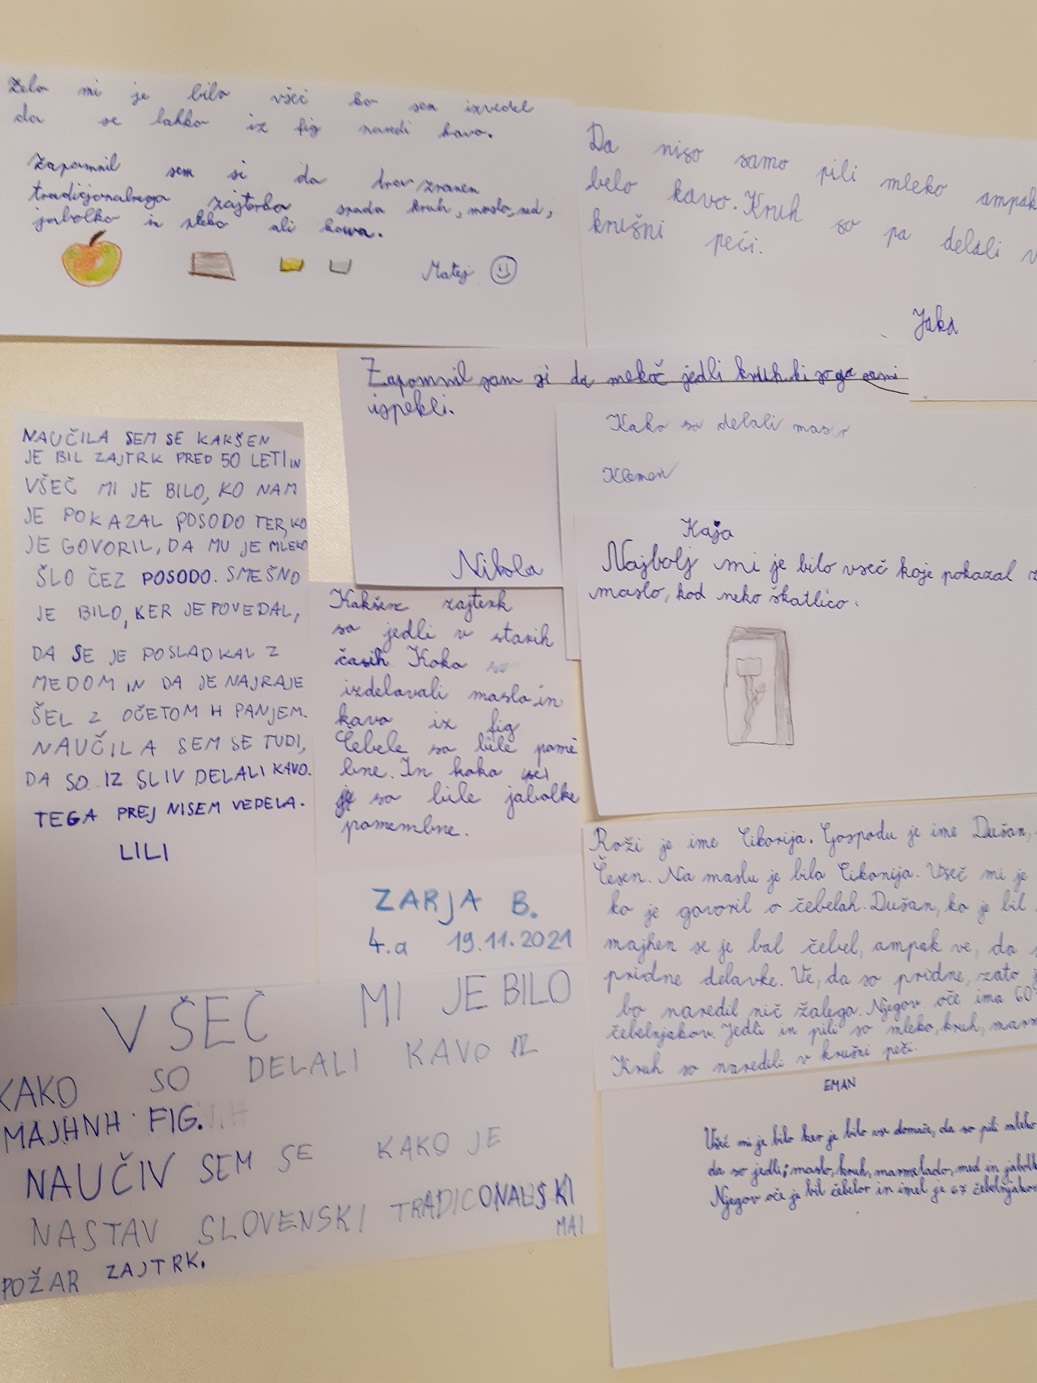 Zelo mi je bilo všeč ko sem izvedel
da se lahko iz fig naredi kava.
Zapomnil sem si da
tradicjonalnega zajtorka spada kruh, maslo, med,
jabolko in mleko ali kawa.
Matej
Da niso samo pili mleko ampak
belo kavo. Kruh so pa delali v
krušni peči.
Jaka
Zapomnil sem si da nekoč jedli kruh ki so ga sami
ispekli.
Nikola
Kako so delali maslo
Klemen
Kaja
Najbolj mi je bilo všeč koje pokazal
maslo, kod neko škatlico.
NAUČILA SEM SE KAKŠEN
JE BIL ZAJTRK PRED 50 LETI IN
VŠEČ MI JE BILO, KO NAM
JE POKAZAL POSODO TER, KO
JE GOVORIL, DA MU JE MLEKO
ŠLO ČEZ POSODO. SMEŠNO
JE BILO, KER JE POVEDAL,
DA SE JE POSLADKAL Z
MEDOM IN DA JE NAJRAJE
ŠEL Z OČETOM H PANJEM.
NAUČILA SEM SE TUDI,
DA SO IZ SLIV DELALI KAVO.
TEGA PREJ NISEM VEDELA.
LILI
Kakšen zajterk
so jedli v starih
časih. Kako so
izdelavali maslo in
kavo ix fig
Čebele so bile pome
bne. In kako
so bile jabolke
pomembne.
ZARJA B.
4.a 19.11.2021
Roži je ime Cikorija. Gospodu je ime Dušan,
Česen. Na maslu je bila Cikorija. Všeč mi je
ko je govoril o čebelah. Dušan, ko je bil
majhen se je bal čebel, ampak ve, da
pridne delavke. Ve, da so pridne, zato
bo naredil nič žalega. Njegov oče ima 60
čebelnjakov. Jedli in pili so mleko, kruh,
Kruh so naredili v krušni peči.
VŠEČ MI JE BILO
KAKO SO DELALI KAVO IZ
MAJHNH FIG.
NAUČIV SEM SE KAKO JE
NASTAV SLOVENSKI TRADICONALSKI
ZAJTRK.
MAI
POŽAR
EMAN
Všeč mi je bilo ker je bilo vse domače, da so pili mleko
da so jedli; maslo, kruh, marmelado, med in
Njegov oče je bil čebelor in imel je 67